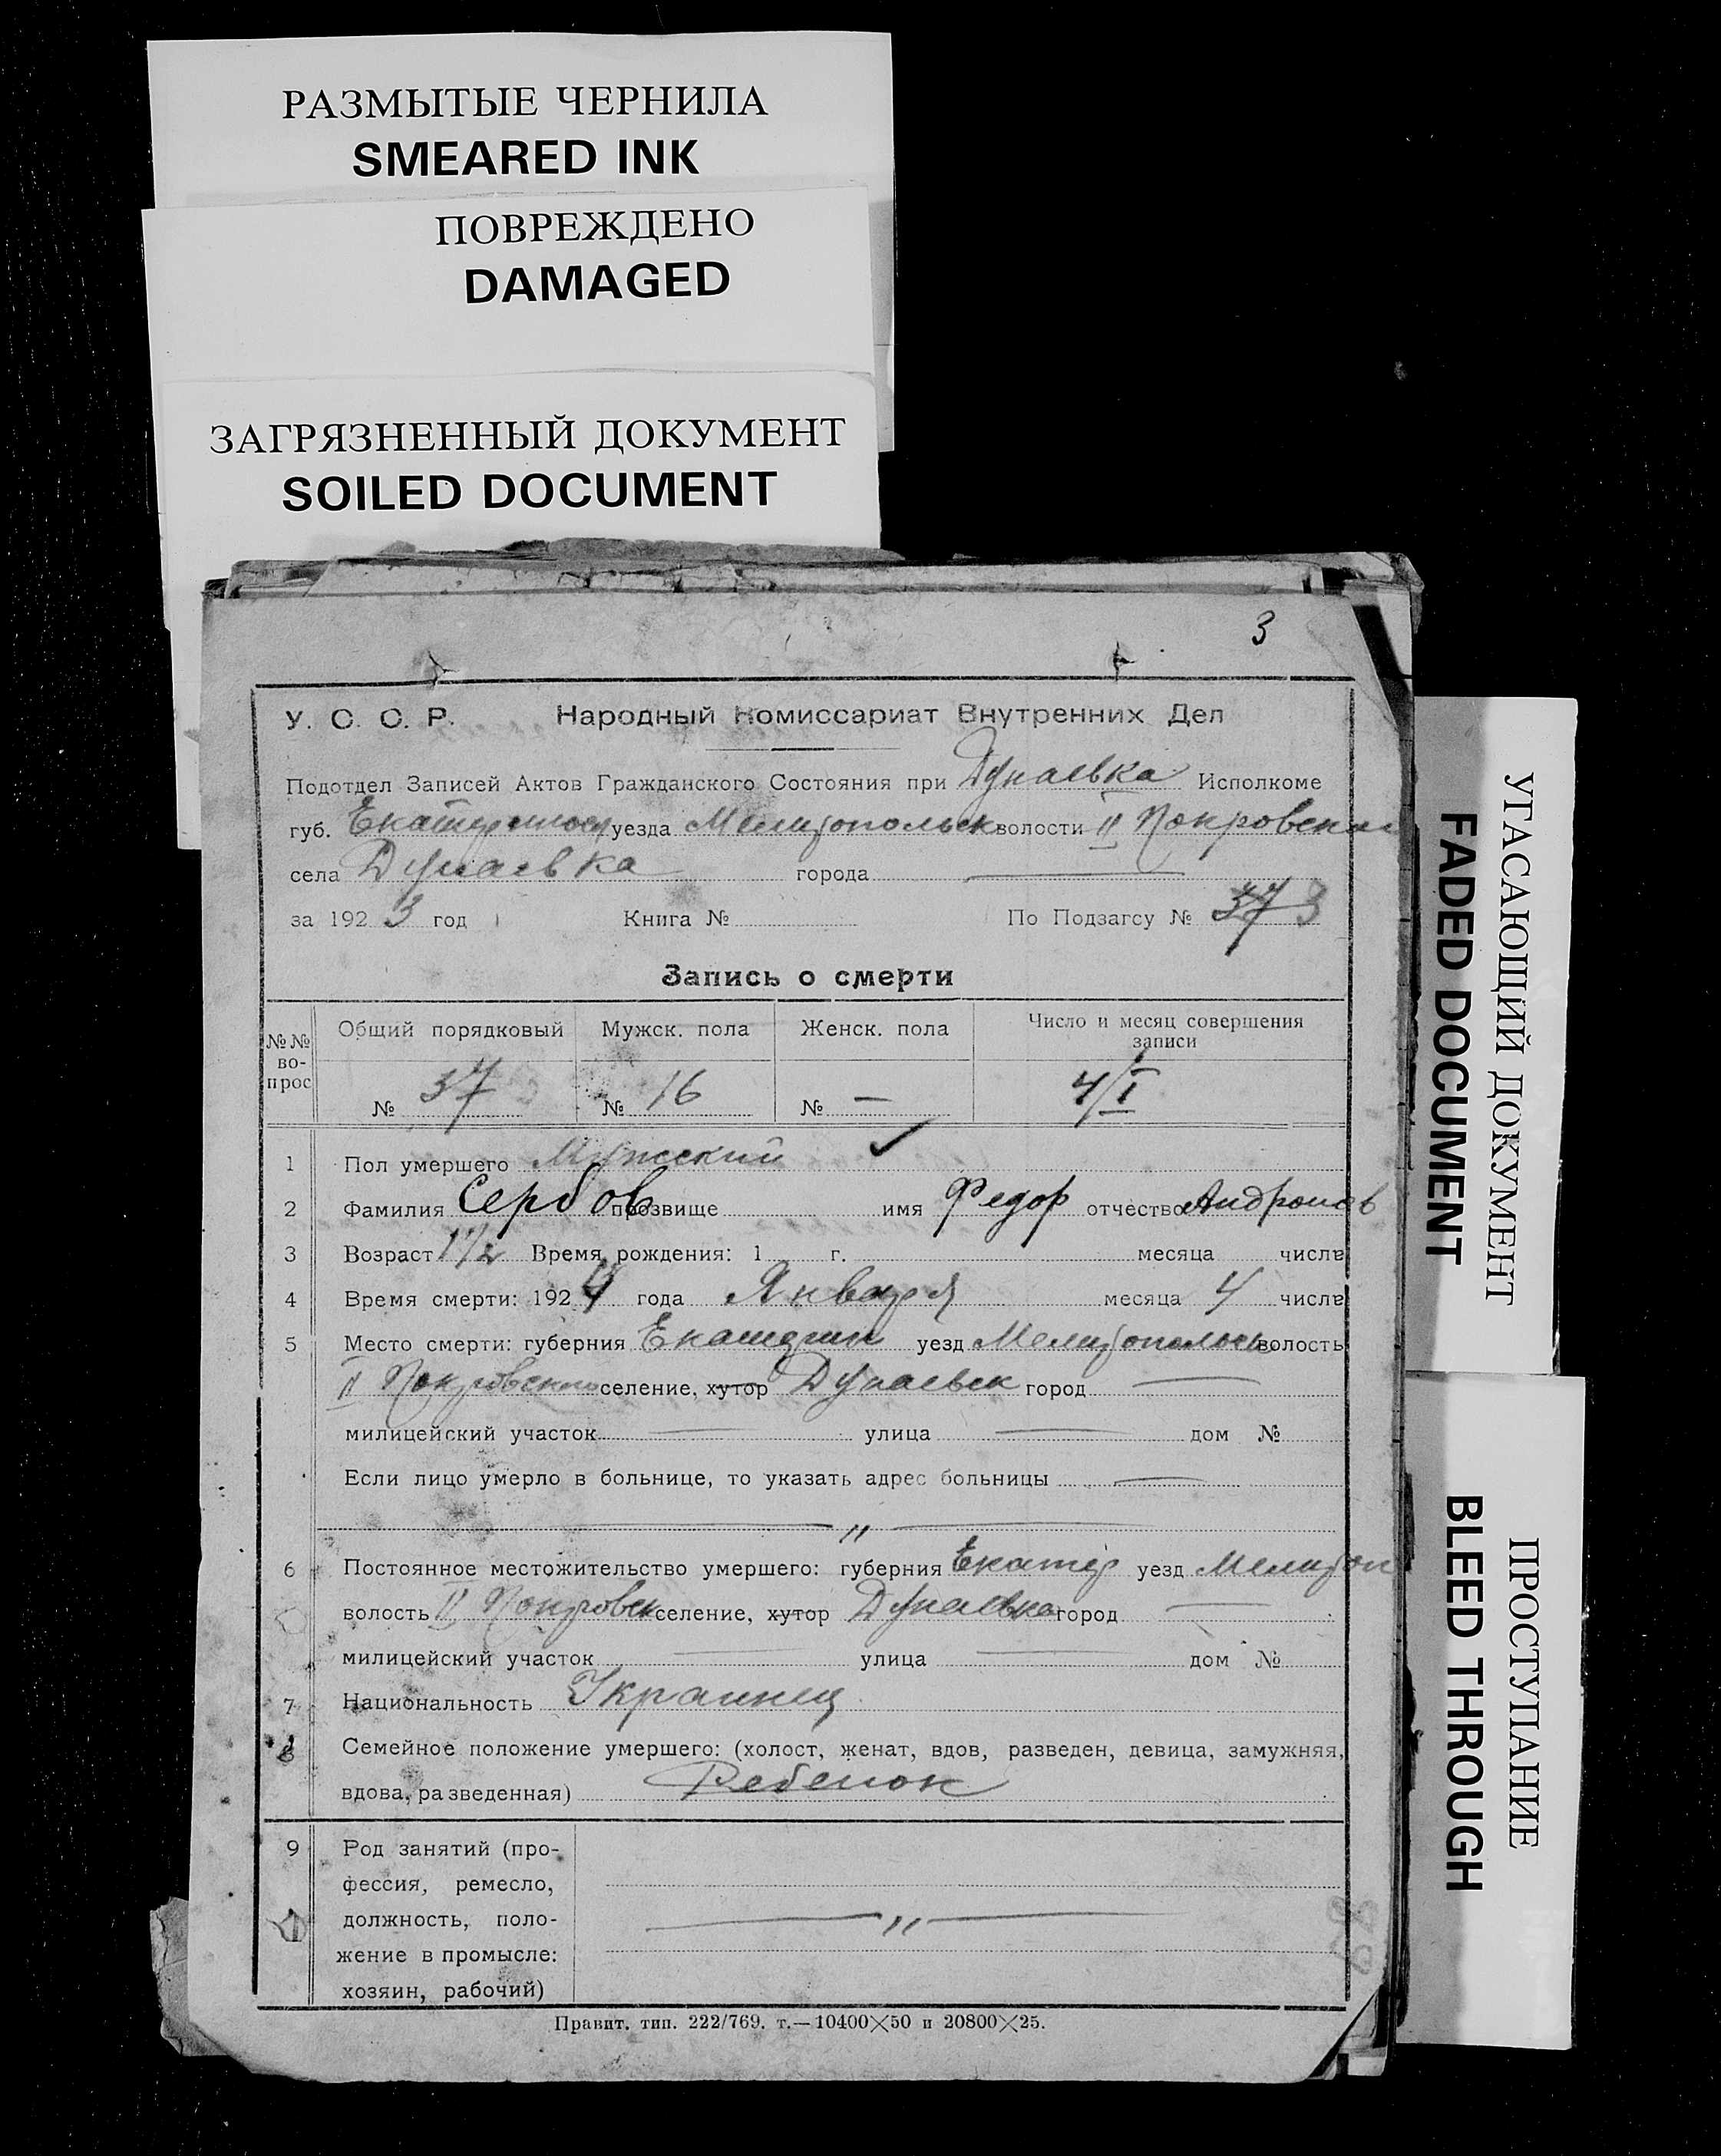 РАЗМЫТЫЕ ЧЕРНИЛА
SMEARED INK
ПОВРЕЖДЕНО
DAMAGED
ЗАГРЯЗНЕННЫЙ ДОКУМЕНТ
SOILED DOCUMENT
3
У. С. С. Р. Народный Комиссариат Внутренних Дел
Подотдел Записей Актов Гражданского Состояния при Дунаевка Исполкоме
губ. уезда Мелитопольск волости II Покровской
села Дунаевка города —
за 1923 год Книга № По Подзагсу № 37 3
Запись о смерти
№№ вопрос Общий порядковый Мужск. пола Женск. пола Число и месяц совершения записи
№ 37 № 16 № — 4/I
1 Пол умершего Мужский
2 Фамилия Сербов прозвище имя Федор отчество Андронов
3 Возраст 1 1/2 Время рождения: 1 г. месяца числа
4 Время смерти: 1924 года Января месяца 4 числа
5 Место смерти: губерния Екатерин уезд Мелитопольск волость
II Покровской селение, хутор Дунаевск город —
милицейский участок — улица — дом №
Если лицо умерло в больнице, то указать адрес больницы —
— " —
6 Постоянное местожительство умершего: губерния Екатер уезд Мелитоп
волость II Покровск селение, хутор Дунаевка город —
милицейский участок — улица — дом №
7 Национальность Украинец
8 Семейное положение умершего: (холост, женат, вдов, разведен, девица, замужняя,
вдова, разведенная) Ребенок
9 Род занятий (про-
фессия, ремесло,
должность, поло- — " —
жение в промысле:
хозяин, рабочий)
Правит. тип. 222/769. т.—10400×50 и 20800×25.
УГАСАЮЩИЙ ДОКУМЕНТ
FADED DOCUMENT
ПРОСТУПАНИЕ
BLEED THROUGH